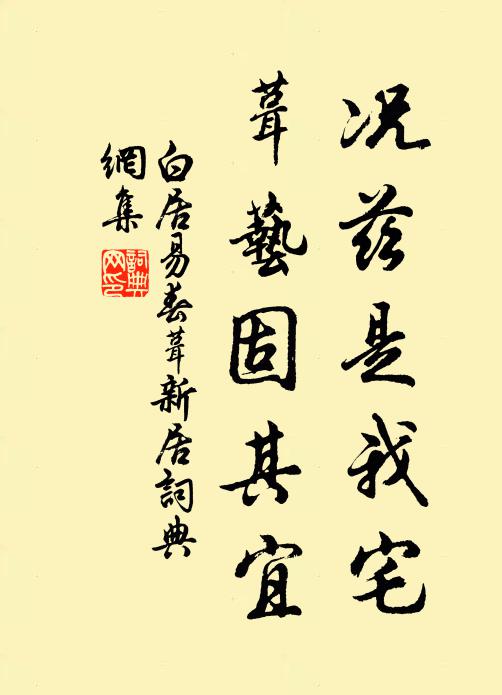 况茲是我宅
葺藝固其宜
白居易春葺新居詞典
網集
詞典
网印